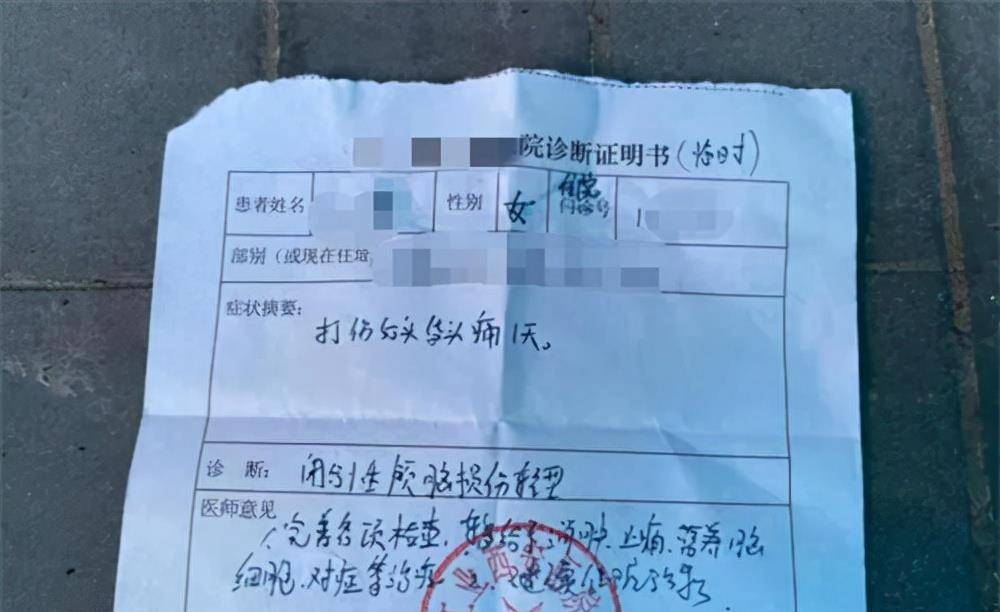 院诊断证明书（临时）
患者姓名 性别 女 住院
部别（或现在住址
症状摘要：
打伤后头昏头痛1天。
诊 断： 闭合性颅脑损伤轻型
医师意见
1、完善各项检查，给予 消肿、止痛、营养脑
细胞、对症等治疗 建议住院治疗